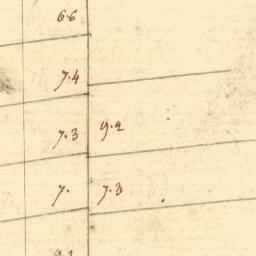 6.6
7.4
7.3 9.2
7. 7.3